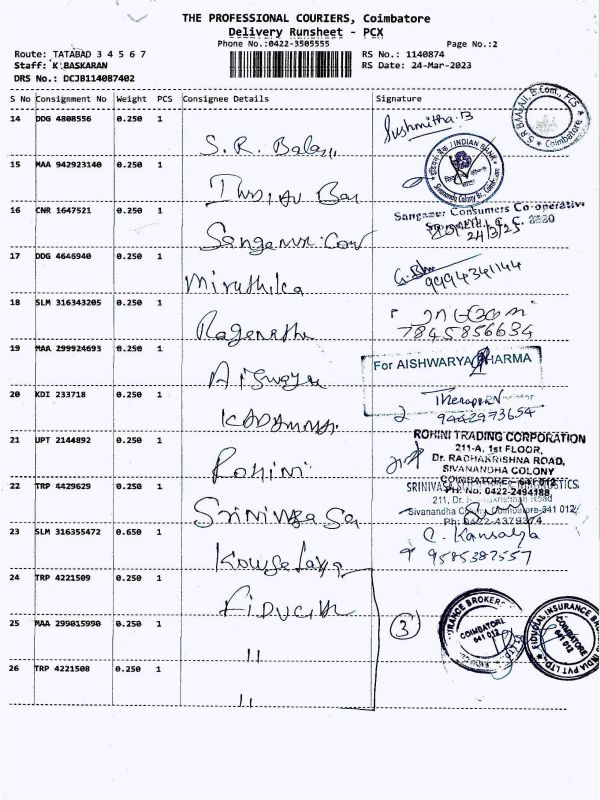 THE PROFESSIONAL COURIERS, Coimbatore
Delivery Runsheet - PCX
Phone No.:0422-3505555 Page No.:2
Route: TATABAD 3 4 5 6 7 RS No.: 1140874
Staff: K BASKARAN RS Date: 24-Mar-2023
DRS No.: DCJB114087402
S No Consignment No Weight PCS Consignee Details Signature
14 DDG 4808556 0.250 1 S.R. Balaji Sushmitha.B
15 MAA 942923140 0.250 1 Indian Ban INDIAN BANK
16 CNR 1647521 0.250 1 Sangamur Con Sangamur Consumers Co-operative
24/3/25
17 DDG 4646940 0.250 1 Miruthika 9994341144
18 SLM 316343205 0.250 1 Ragenathn 7845856634
19 MAA 299924693 0.250 1 Aishwarya For AISHWARYA PHARMA
20 KDI 233718 0.250 1 KADAMBA 9442973654
21 UPT 2144892 0.250 1 Rohini ROHINI TRADING CORPORATION
211-A, 1st FLOOR,
Dr. RADHAKRISHNA ROAD,
SIVANANDHA COLONY
COIMBATORE - 641 012
PH: No: 0422-2494188
22 TRP 4429629 0.250 1 Srinivasa Sa
211, Dr. Radhakrishnan Road
Sivanandha Colony Coimbatore-641 012
Ph: 0422-4379374
23 SLM 316355472 0.650 1 Kowsalaya C. Kansalya
9585387557
24 TRP 4221509 0.250 1 Fiducial
25 MAA 299015990 0.250 1 11 3
26 TRP 4221508 0.250 1 11
COIMBATORE
641 012
FIDUCIAL INSURANCE BROKERS INDIA PVT LTD
COIMBATORE
641 012